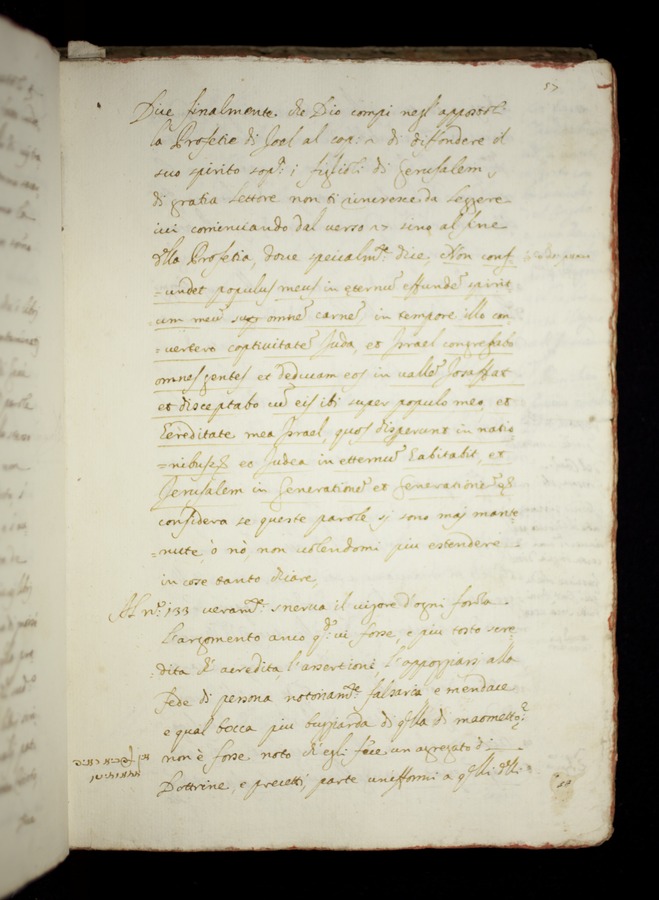 57
Dice finalmente che Dio compì negl'appostoli
la Profetia di Joel al cap: 2 di diffondere il
suo spirito sop.ª i figlioli di Gerusalem,
di gratia lettore non ti rincresce da leggere
ivi cominciando dal verso 27 sino al fine
della Profetia, dove specialm.te dice, Non conf
=undet populus meus in eternũ effundẽ spirit
um meũ supr omnẽ carnẽ in tempore illo con
=vertero captivitatẽ Juda, et Israel congregabo
omnes gentes et deducam eos in vallẽ Josaffat
et disceptabo cũ eis ibi super populo meo, et
hereditate mea Israel, quos disperunt in natio
=nibus et Judea in etternũ habitabit, et
Jerusalem in Generationẽ et Generationẽ
considera se queste parole si sono maj mante
=nute, ò nò, non volendomi piu estendere
in cose tanto chiare,
Al nº: 133 veram.te snerva il vigore d'ogni forza
l'argomento anco q.do vi fosse, e piu tosto scre
=dita che acredita l'assertione, l'appoggiarsi alla
fede di persona notoriam.te falsaria e mendace
e qual bocca piu buggiarda di q.lla di maometto?
non è forse noto ch'egli fece un agregato di
Dottrine, e precetti, parte uniformi a q.lli delli